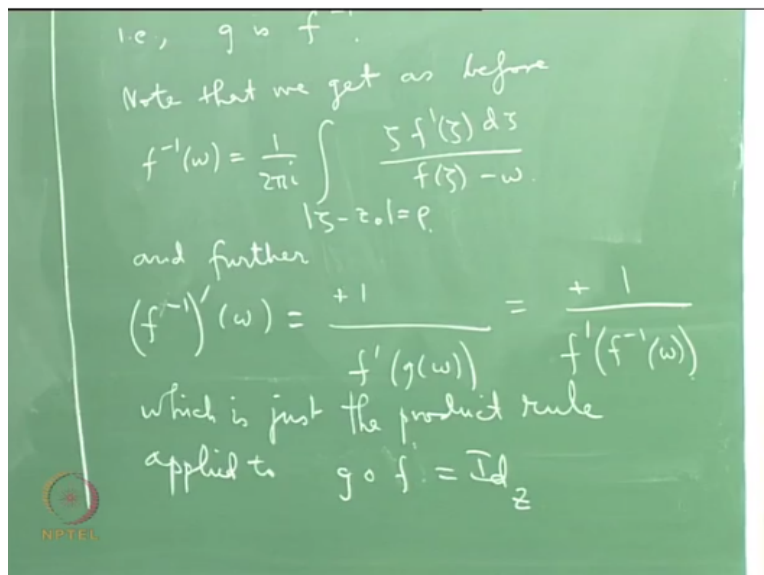 i.e., g is f⁻¹.
Note that we get as before
f⁻¹(w) = 1/(2πi) ∫_{|ζ - z₀| = ρ} ζ f'(ζ) dζ / (f(ζ) - w)
and further
(f⁻¹)'(w) = +1 / f'(g(w)) = +1 / f'(f⁻¹(w))
which is just the product rule
applied to g ∘ f = Id_z
NPTEL